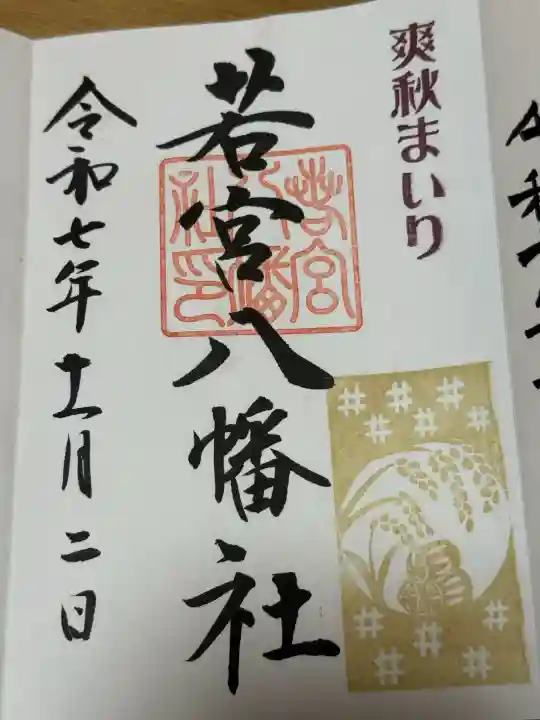 爽秋まいり
若宮八幡社
若宮八幡社印
令和七年十一月二日